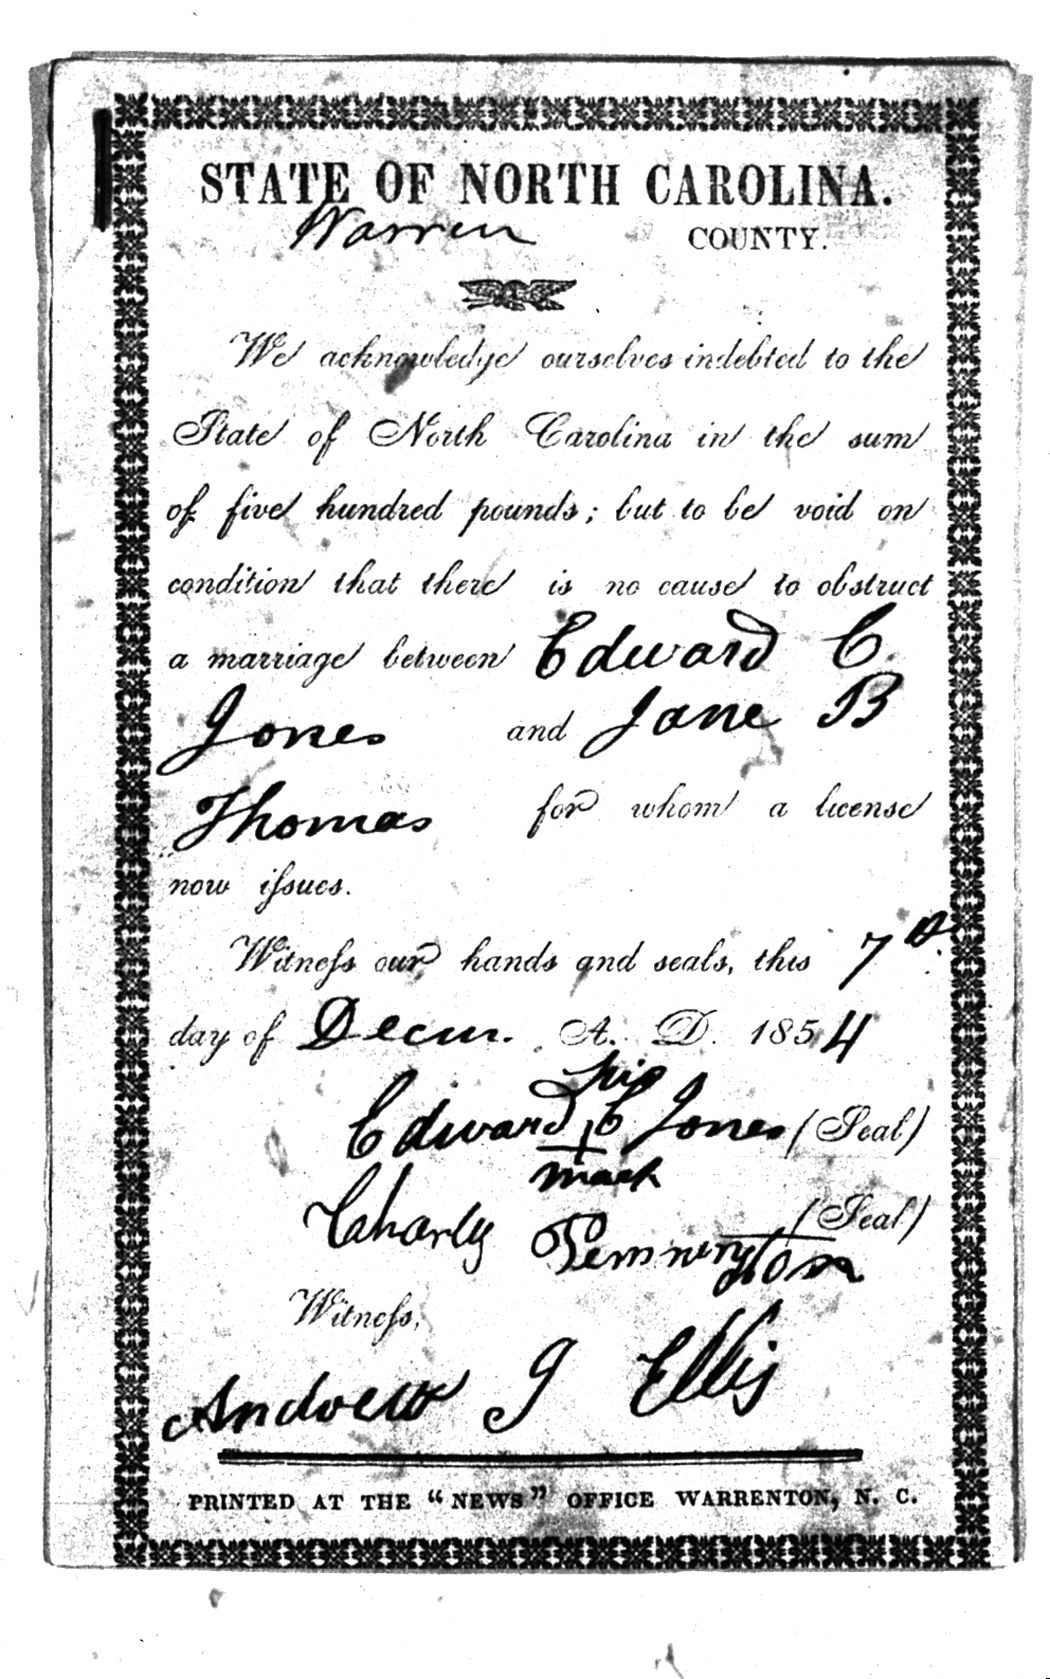 STATE OF NORTH CAROLINA.
Warren COUNTY.
We acknowledge ourselves indebted to the
State of North Carolina in the sum
of five hundred pounds; but to be void on
condition that there is no cause to obstruct
a marriage between Edward C.
Jones and Jane B
Thomas for whom a license
now issues.
Witness our hands and seals, this 7th
day of Decm. A. D. 1854
his
Edward C Jones (Seal)
mark
Charly Pemnington (Seal)
Witness,
Andrew J Ellis
PRINTED AT THE "NEWS" OFFICE WARRENTON, N. C.